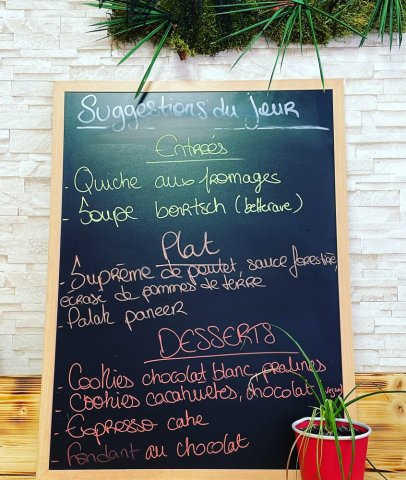 Suggestions du jour
Entrées
- Quiche aux fromages
- Soupe bortsch (betterave)
Plat
- Suprême de poulet, sauce forestière,
écrasé de pommes de terre
- Palak paneer
DESSERTS
- Cookies chocolat blanc, pralines
- Cookies cacahuètes, chocolat
- Expresso cake
- Fondant au chocolat